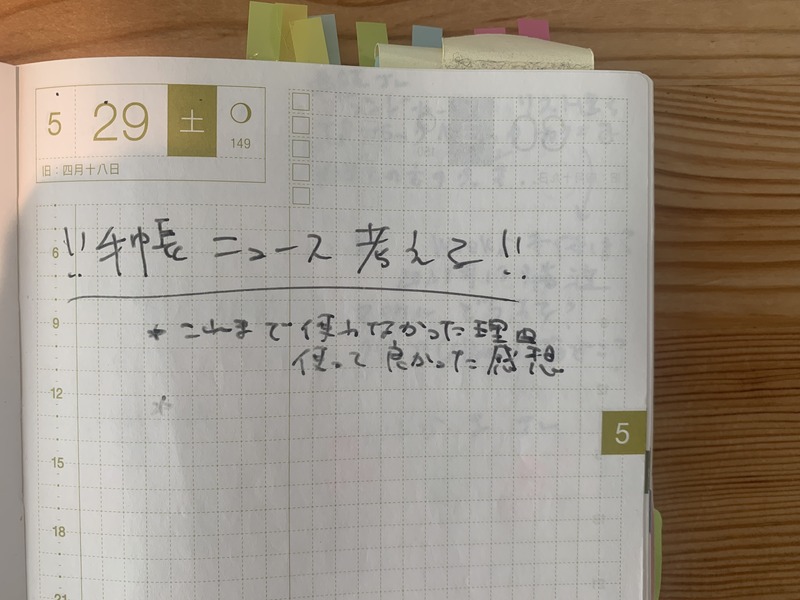 5 29 土
149
旧：四月十八日
!! 手帳 ニュース 考えろ !!
6
9
* これまで使わなかった理由
使って良かった感想
12
*
5
15
18
21